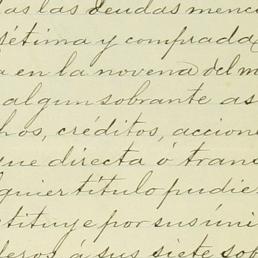 las las deudas menc
sétima y comprada
a en la novena del m
algun sobrante as
hos, créditos, accione
que directa ó tran
lquier título pudie
stituye por sus úni
deros á sus siete sob